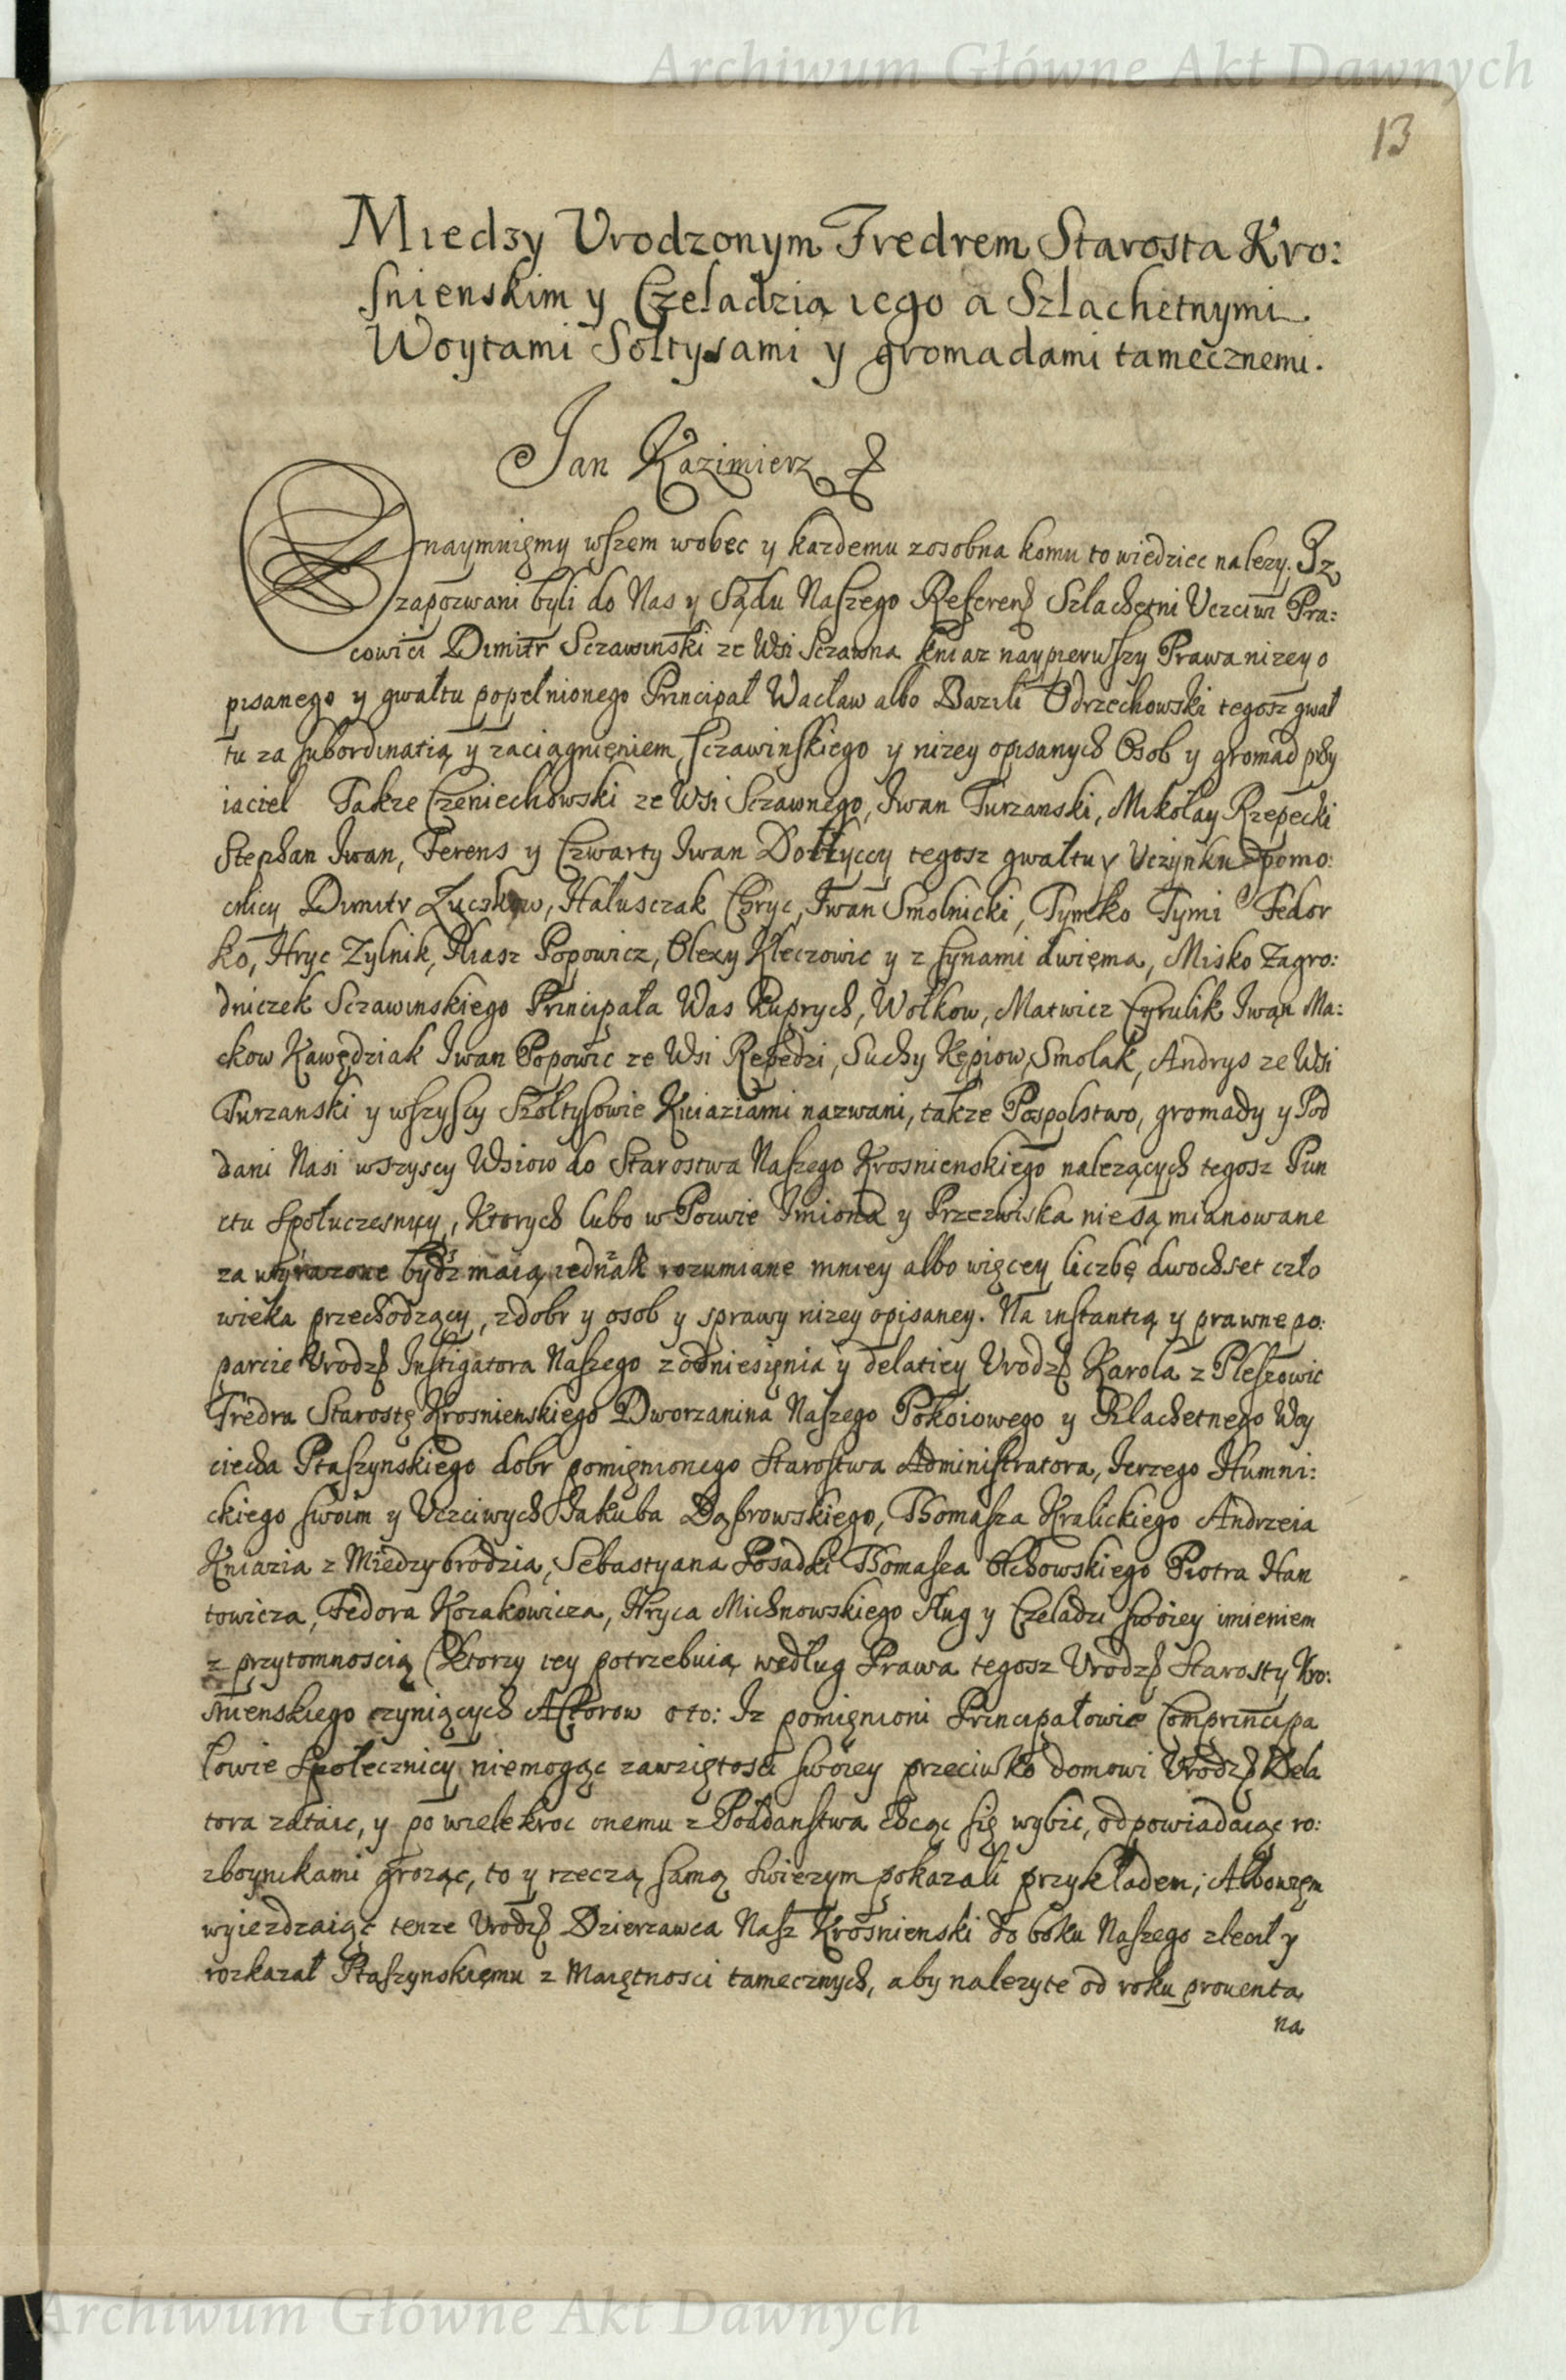 Archiwum Główne Akt Dawnych
13
Miedzy Urodzonym Fredrem Starosta Kro:
snienskim y Czeladzią iego a Szlachetnymi
Woytami Sołtysami y gromadami tamecznemi.
Jan Kazimierz
Oznaymuięmy wszem wobec y kazdemu zosobna komu to wiedziec nalezy. Iz
zapozwani byli do Nas y Sądu Naszego Referen Szlachetni Uczciwi Pra:
cowici Dimitr Sczawinski ze Wsi Sczawna kniaz naypierwszy Prawa nizey o
pisanego y gwałtu popełnionego Principał Wacław albo Bazili Odrzechowski tegosz gwał
tu za subordinatią y zaciągnieniem Sczawinskiego y nizey opisanych Osob y gromad przy
iaciel Takze Czeniechowski ze Wsi Sczawnego, Iwan Turzanski, Mikołay Rzepecki
Stephan Iwan, Ferens y Czwarty Iwan Dołzyccy tegosz gwałtu y Uczynku pomo:
cnicy Dimitr Haluszczak Chryc, Iwan Smolnicki, Tymko Tymi Fedor
ko, Hryc Zylnik, Iliasz Popowicz, Olexy Kleczowic y z synami dwięma, Misko Zagro:
dniczek Sczawinskiego Principała Was Kuprych, Wołkow, Matwicz Cyrulik Iwan Ma:
ckow Kawędziak Iwan Popowic ze Wsi Repedzi, Suchy Kępiow, Smolak, Andrys ze Wsi
Turzanski y wszyscy Szołtysowie Kniaziami nazwani, takze Pospolstwo, gromady y Pod
dani Nasi wszyscy Wsiow do Starostwa Naszego Krosnienskiego nalezących tegosz Pun
ctu Społuczesnicy, Ktorych lubo w Pozwie Imiona y Przezwiska nie są mianowane
za wyrazone bydz maią iednak rozumiane mniey albo więcey liczbę dwochset czło
wieka przechodzący, z dobr y osob y sprawy nizey opisaney. Na instantią y prawne po:
parcie Urodz Instigatora Naszego z odniesięnia y delatiey Urodz Karola z Pleszowic
Fredra Starostę Krosnienskiego Dworzanina Naszego Pokoiowego y Szlachetnego Woy
ciecha Ptaszynskiego dobr pomięnionego Starostwa Administratora, Jerzego Humni:
ckiego swoim y Uczciwych Jakuba Dąbrowskiego, Thomasza Kralickiego Andrzeia
Kniazia z Miedzybrodzia, Sebastyana Posadki Thomasza Olchowskiego Piotra Han
towicza, Fedora Kozakowicza, Hryca Michnowskiego Sług y Czeladzi swoiey imieniem
z przytomnoscią (Ktorzy iey potrzebuią według Prawa tegosz Urodz Starosty Kro:
snienskiego czyniących Actorow oto: Iz pomięnioni Principałowie Comprincipa
łowie Społecznicy niemogąc zawziętosci swoiey przeciwko domowi Urodz Dela
tora zataic, y po wielekroc onemu z Poddanstwa chcąc się wybic, odpowiadaiąc ro:
zboynikami grożąc, to y rzeczą samą swiezym pokazali przykładem; Albowięm
wyiezdzaiąc tenze Urodz Dzierzawca Nasz Krosnienski do boku Naszego zlecił y
rozkazał Ptaszynskięmu z Maiętnosci tamecznych, aby nalezyte od roku prouenta
na
Archiwum Główne Akt Dawnych